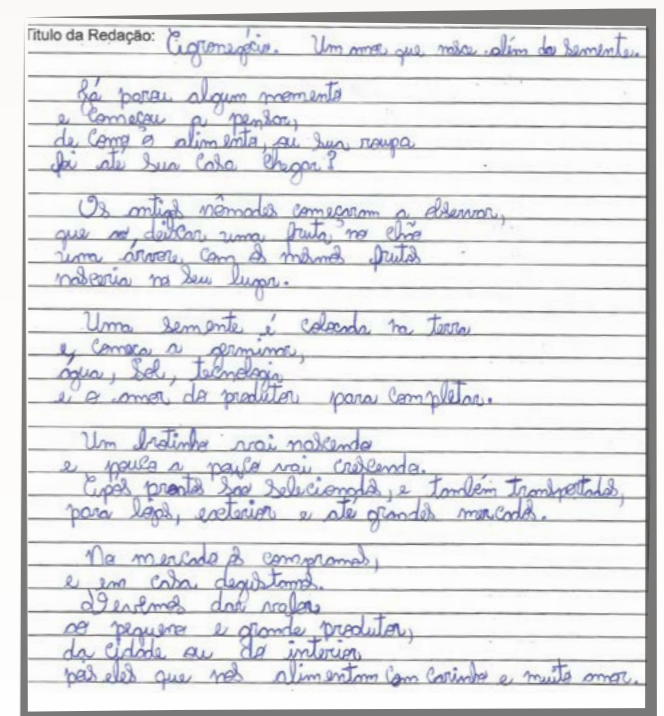 Título da Redação: Agronegócio. Um amor que nasce além da semente.
Já parou algum momento
e começou a pensar,
de como o alimento, ou sua roupa
foi até sua casa chegar?
Os antigos nômades começaram a observar,
que ao deixar uma fruta no chão
uma árvore, com os mesmos frutos
nasceria no seu lugar.
Uma semente é colocada na terra
e, começa a germinar,
água, sol, tecnologia
e o amor do produtor para completar.
Um brotinho vai nascendo
e pouco a pouco vai crescendo.
Após prontos são selecionados, e também transportados,
para lojas, exterior e até grandes mercados.
No mercado os compramos,
e em casa degustamos.
Devemos dar valor
ao pequeno e grande produtor,
da cidade ou do interior
pois eles que nos alimentam com carinho e muito amor.